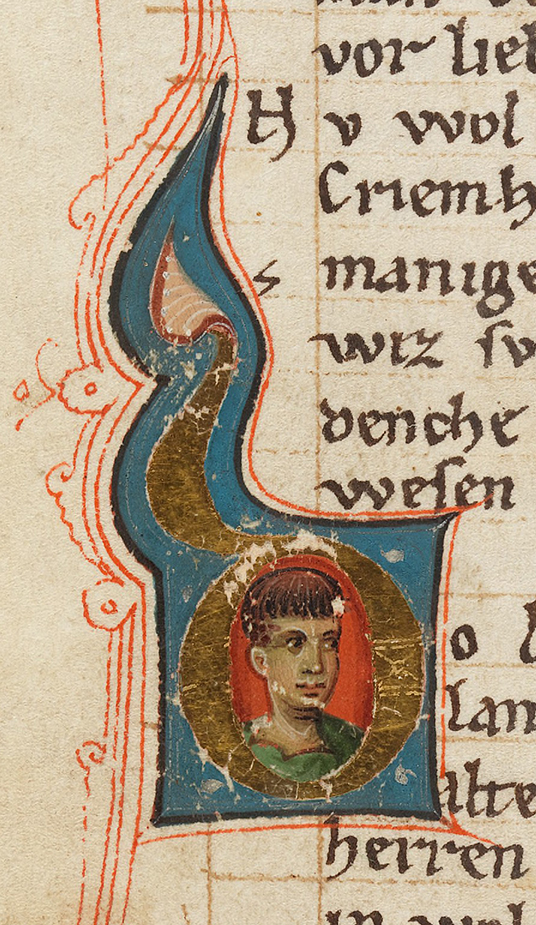 vor lieb
H v wol
Criemh
manige
wiz sv
denche
wesen
D o
lan
alte
herren
in wol